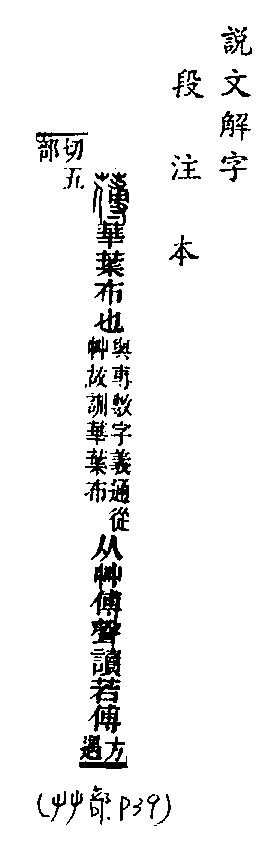 說文解字
段注本
華葉布也
與尃敷字義通從
艸故訓華葉布
从艸傅聲讀若傅
方
遇
切五
部
(艸部.P39)